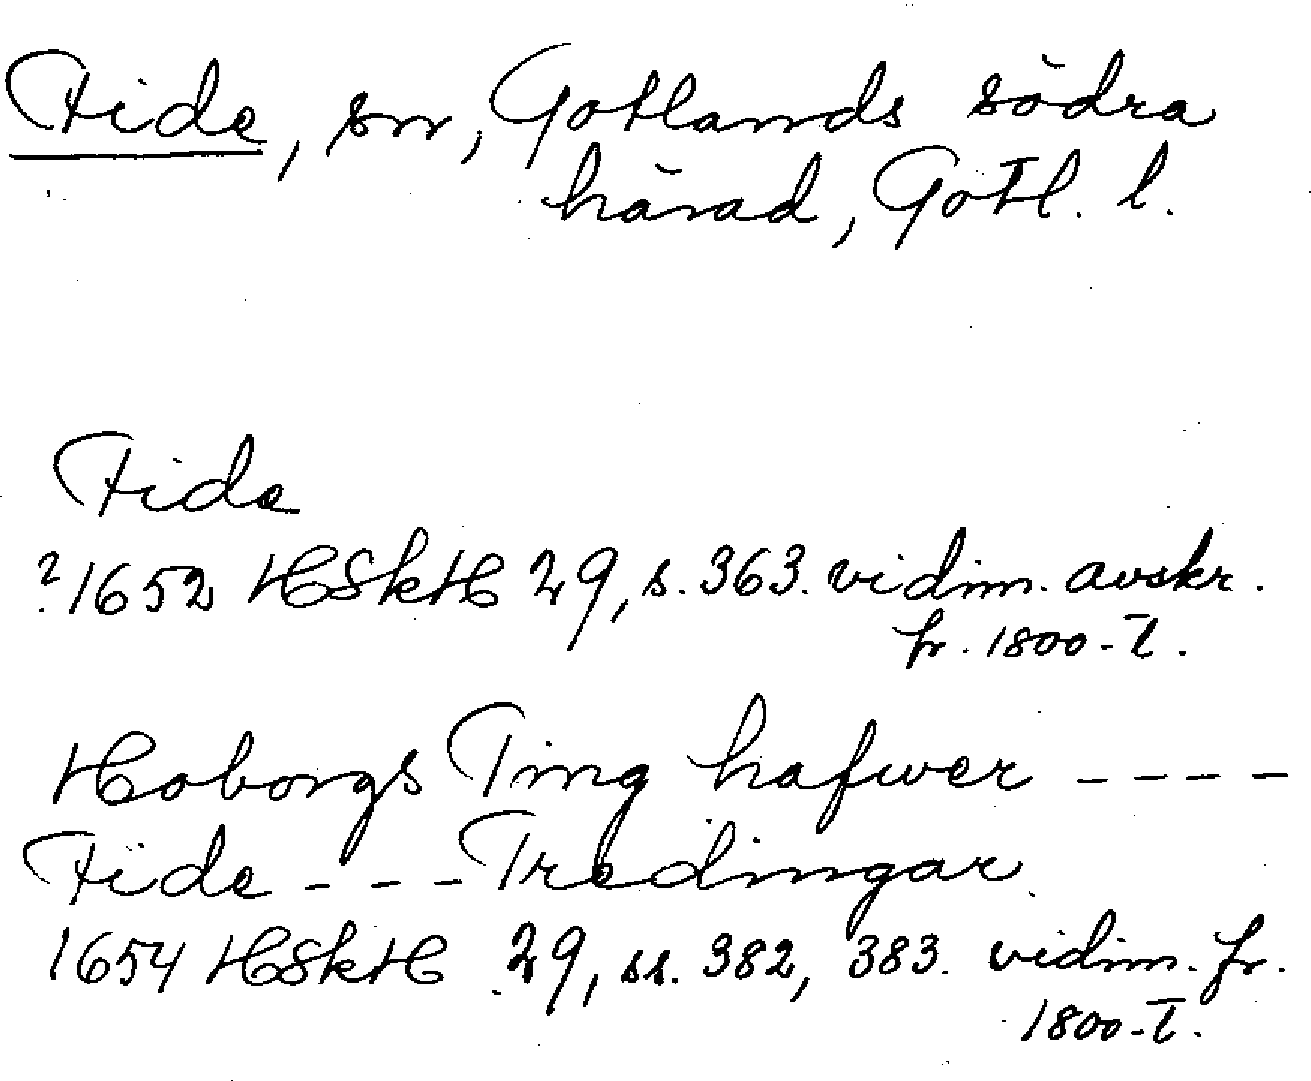 Fide, sn, Gotlands södra
härad, Gotl. l.
Fide
?1652 HSkH 29, s. 363. vidim. avskr.
fr. 1800-t.
Hoborgs Ting hafwer ----
Fide --- Tredingar
1654 HSkH 29, ss. 382, 383. vidim. fr.
1800-t.